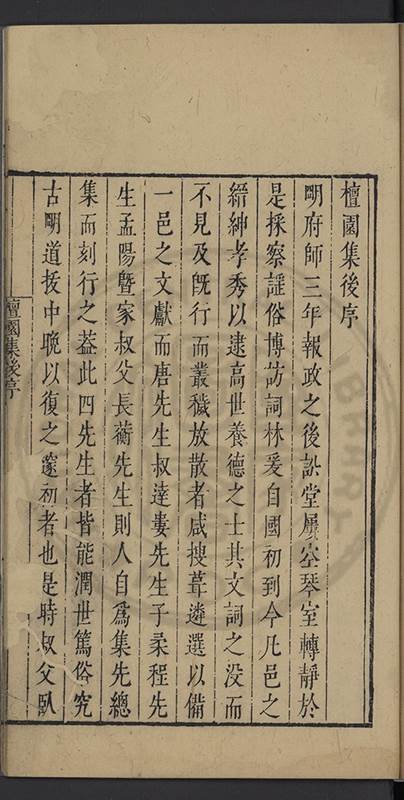 檀園集後序
明府師三年報政之後訟堂屢空琴室轉靜於
是採察謡俗博訪詞林爰自國初到今凡邑之
縉紳孝秀以逮高世養德之士其文詞之没而
不見及旣行而叢穢放散者咸搜葺遴選以備
一邑之文獻而唐先生叔達婁先生子柔程先
生孟陽曁家叔父長蘅先生則人自爲集先總
集而刻行之葢此四先生者皆能潤世篤俗究
古明道拔中晩以復之邃初者也是時叔父臥
檀園集後序